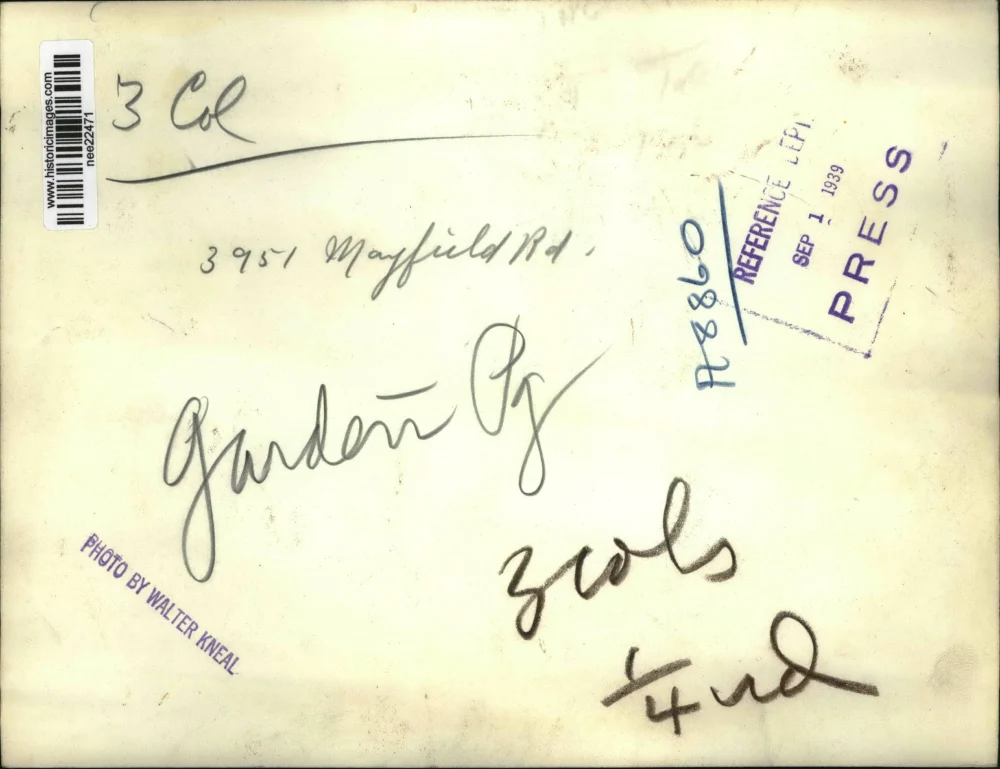 www.historicimages.com
nee22471
3 Col
3951 Mayfield Rd.
Garden Pg
A8860
REFERENCE DEPT.
SEP 1 1939
PRESS
PHOTO BY WALTER KNEAL
3 cols
1/4